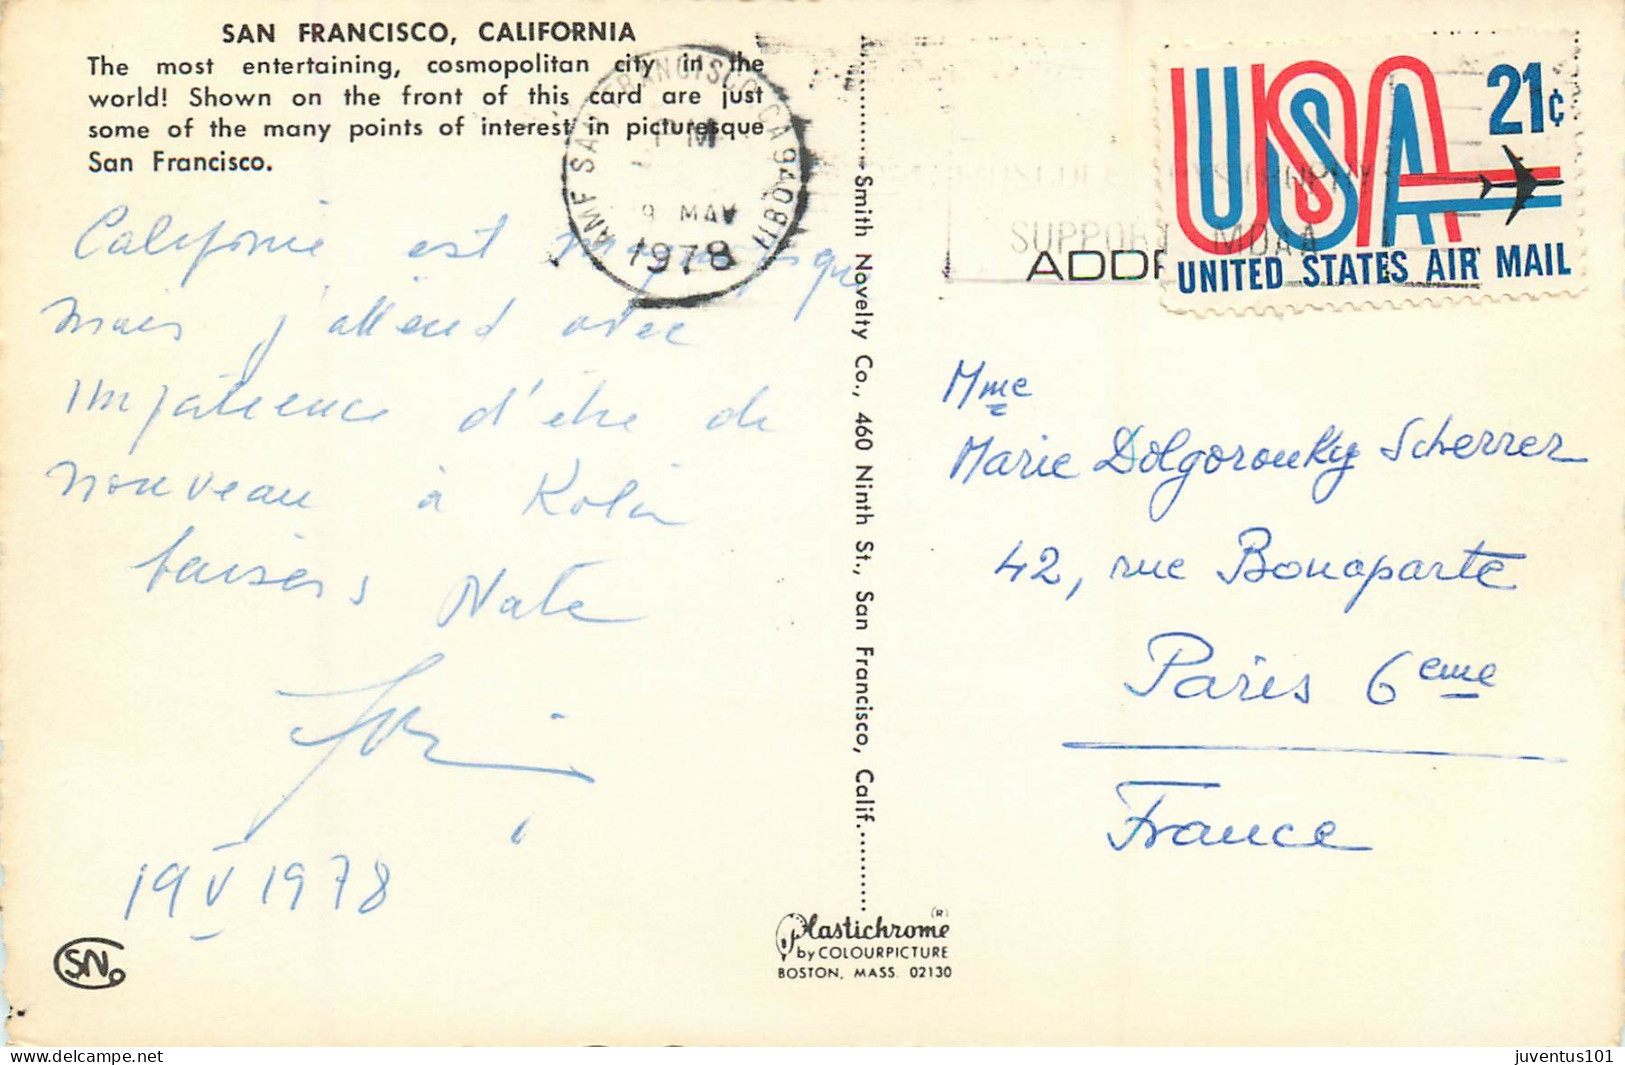 SAN FRANCISCO, CALIFORNIA
The most entertaining, cosmopolitan city in the
world! Shown on the front of this card are just
some of the many points of interest in picturesque
San Francisco.
Californie est
mais j'attend avec
impatience d'être de
nouveau à
baisers Nata
19 V 1978
SN
AMF SAN FRANCISCO CA 940
PM
9 MAY
1978
Smith Novelty Co., 460 Ninth St., San Francisco, Calif.
Plastichrome (R)
by COLOURPICTURE
BOSTON, MASS. 02130
SUPPORT MDAA
USA 21¢
UNITED STATES AIR MAIL
ADD
Mme
Marie Dolgorouky Scherrer
42, rue Bonaparte
Paris 6eme
France
delcampe.net
juventus101